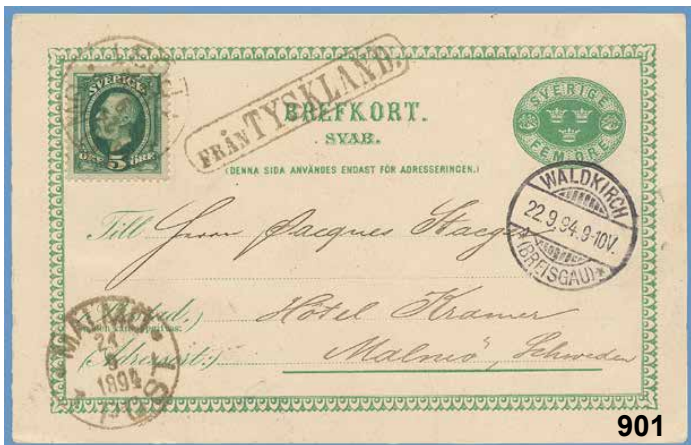 SVERIGE
5
ÖRE
FRÅN TYSKLAND.
BREFKORT.
SVAR.
(DENNA SIDA ANVÄNDES ENDAST FÖR ADRESSERINGEN.)
SVERIGE
FEM ÖRE
WALDKIRCH
22.9.94.9-10V.
(BREISGAU)
Till Herrn Jacques
Hôtel Kramer
(Adressort:) Malmö, Schweden
MALMÖ
24
9
1894
901